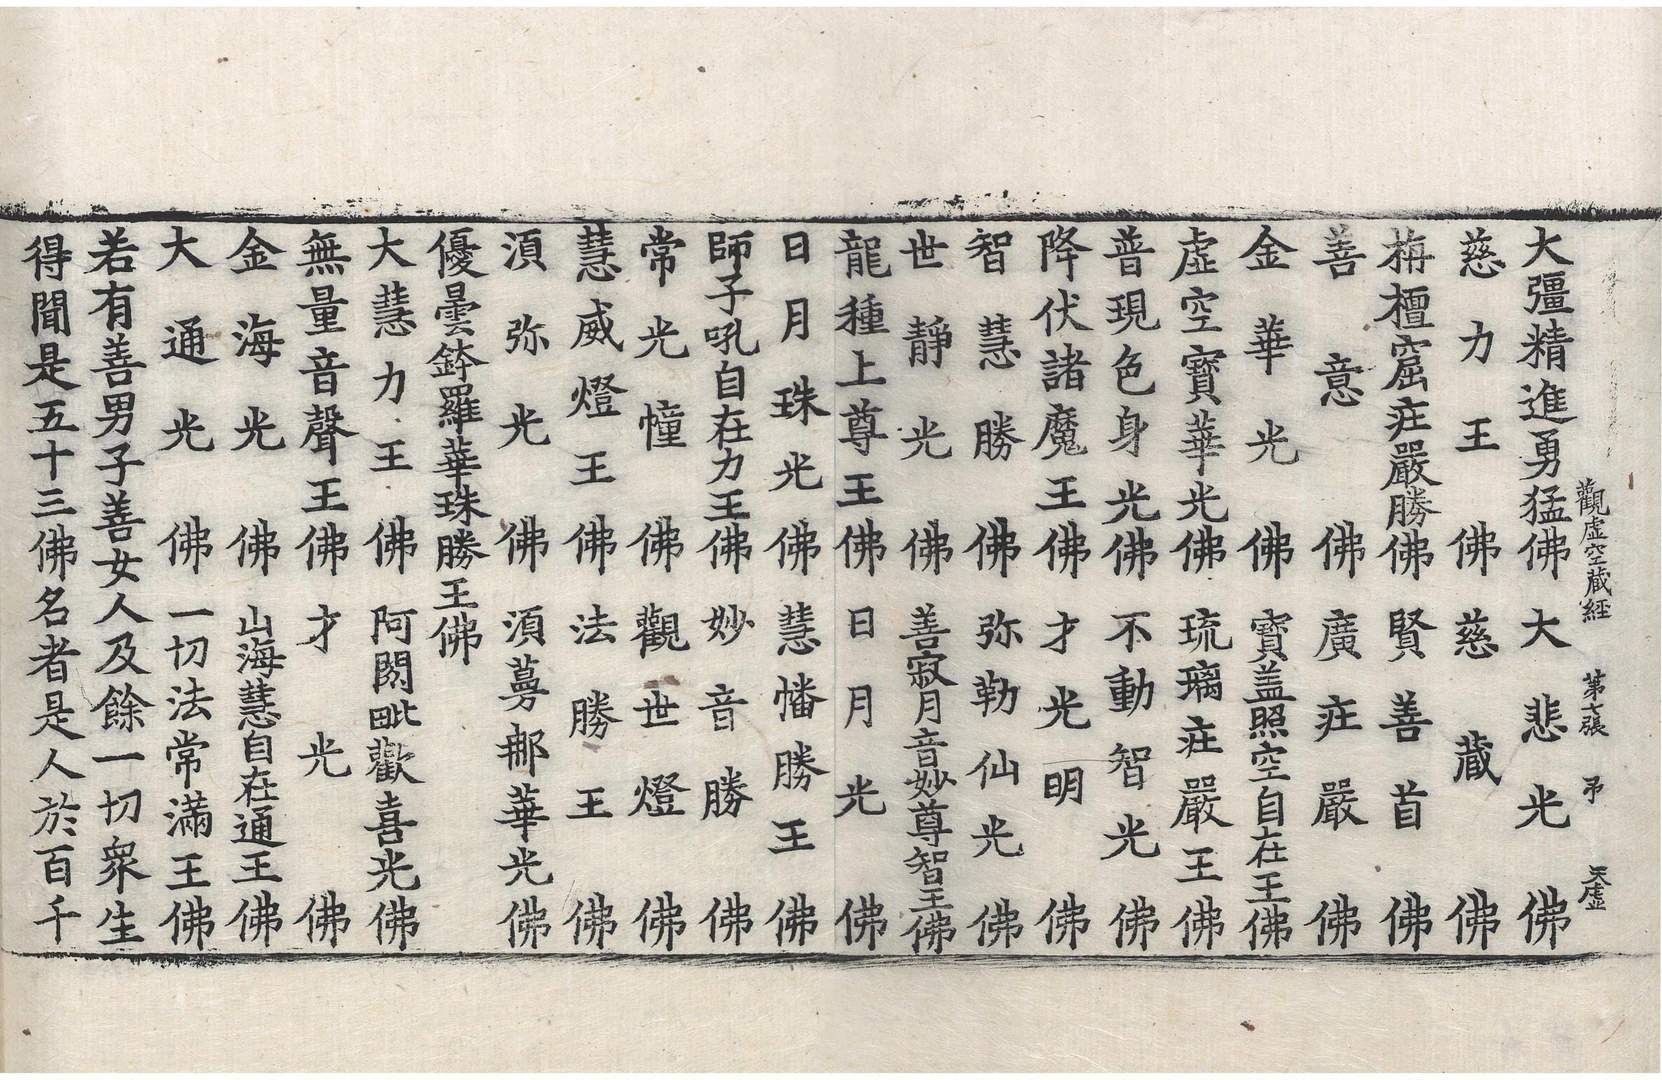 觀虛空藏經 第七張 弔 天虛
大彊精進勇猛佛 大悲光佛
慈力王佛 慈藏佛
栴檀窟㽵嚴勝佛 賢善首佛
善意佛 廣㽵嚴佛
金華光佛 寶盖照空自在王佛
虛空寶華光佛 琉璃㽵嚴王佛
普現色身光佛 不動智光佛
降伏諸魔王佛 才光明佛
智慧勝佛 弥勒仙光佛
世靜光佛 善寂月音妙尊智王佛
龍種上尊王佛 日月光佛
日月珠光佛 慧幡勝王佛
師子吼自在力王佛 妙音勝佛
常光幢佛 觀世燈佛
慧威燈王佛 法勝王佛
須弥光佛 須蔓那華光佛
優曇鉢羅華珠勝王佛
大慧力王佛 阿閦毗歡喜光佛
無量音聲王佛 才光佛
金海光佛 山海慧自在通王佛
大通光佛 一切法常滿王佛
若有善男子善女人及餘一切衆生
得聞是五十三佛名者是人於百千